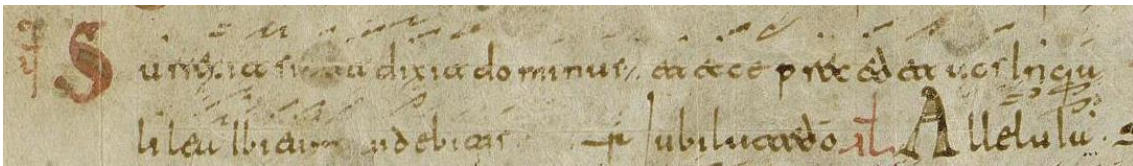 Surrexit sicut dixit dominus, et ecce precedet uos In ga
lilea Ibi eum uidebitis p Iubilate do al Allelula